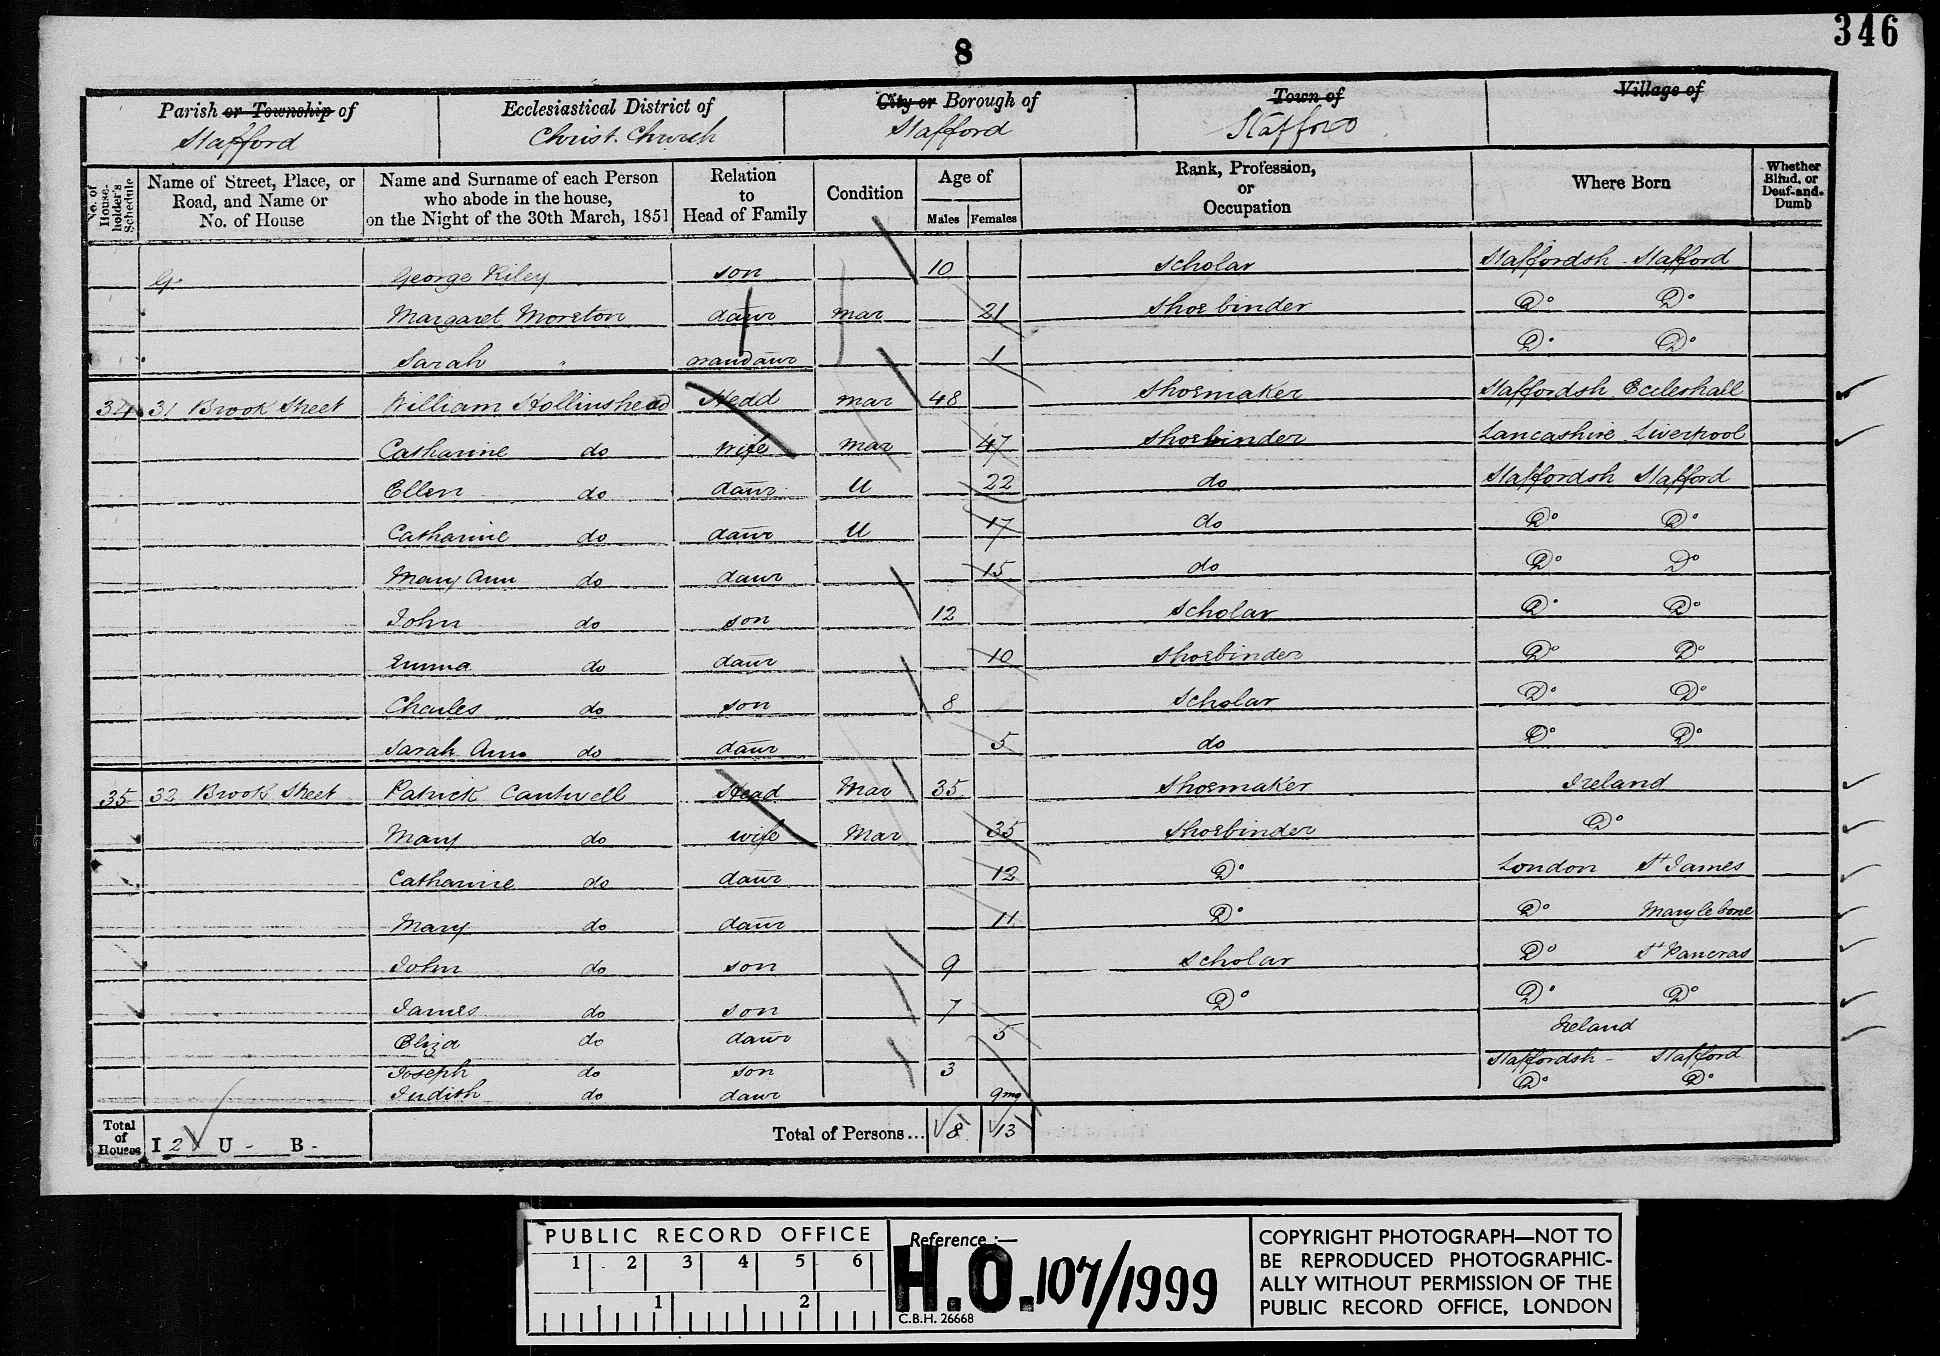 346
8
Parish or Township of Ecclesiastical District of City or Borough of Town of Village of
Stafford Christ Church Stafford Stafford
No. of House-holder's Schedule Name of Street, Place, or Road, and Name or No. of House Name and Surname of each Person who abode in the house, on the Night of the 30th March, 1851 Relation to Head of Family Condition Age of Males Females Rank, Profession, or Occupation Where Born Whether Blind, or Deaf-and-Dumb
George Kiley son 10 Scholar Staffordsh Stafford
Margaret Moreton daur mar 21 Shoe binder Do Do
Sarah " granddaur 1 Do Do
34 31 Brook Street William Hollinshead Head mar 48 Shoemaker Staffordsh Eccleshall
Catharine do wife mar 47 Shoebinder Lancashire Liverpool
Ellen do daur U 22 do Staffordsh Stafford
Catharine do daur U 17 do Do Do
Mary Ann do daur 15 do Do Do
John do son 12 Scholar Do Do
Emma do daur 10 Shoebinder Do Do
Charles do son 8 Scholar Do Do
Sarah Ann do daur 5 do Do Do
35 32 Brook Street Patrick Cantwell Head Mar 35 Shoemaker Ireland
Mary do wife Mar 35 Shoebinder Do
Catharine do daur 12 Do London St James
Mary do daur 11 Do Do Marylebone
John do son 9 Scholar Do St Pancras
James do son 7 Do Do Do
Eliza do daur 5 Ireland
Joseph do son 3 Staffordsh - Stafford
Judith do daur 9mo Do Do
Total of Houses I 2 U - B - Total of Persons... 8 13
PUBLIC RECORD OFFICE
1 2 3 4 5 6
1 2
Reference :—
H.O. 107/1999
C.B.H. 26668
COPYRIGHT PHOTOGRAPH—NOT TO
BE REPRODUCED PHOTOGRAPHIC-
ALLY WITHOUT PERMISSION OF THE
PUBLIC RECORD OFFICE, LONDON